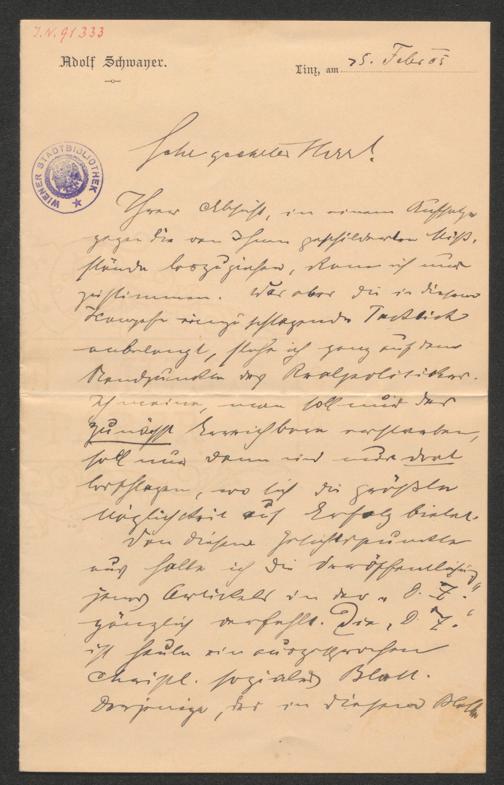 I.N. 91333
Adolf Schwayer.
Linz, am 25. Febr 05
WIENER STADTBIBLIOTHEK
Sehr geehrter Herr!
Ihrer Absicht, in einem Aufsatze
gegen die von Ihnen geschilderten Miß-
stände loszuziehen, kann ich nur
zustimmen. Was aber die in diesem
Kampfe einzuschlagende Tacktick
anbelangt, stehe ich ganz auf dem
Standpunkte des Realpolitikers.
Ich meine, man soll nur das
zunächst Erreichbare anstreben,
soll nur dann und nur dort
losschlagen, wo sich die größte
Möglichkeit auf Erfolg bietet.
Von diesem Gesichtspunkte
aus halte ich die Veröffentlichung
jenes Artikels in der „D. Z."
gänzlich verfehlt. Die „D. Z."
ist heute ein ausgesprochen
christl. soziales Blatt.
Derjenige, der in diesem Blatte